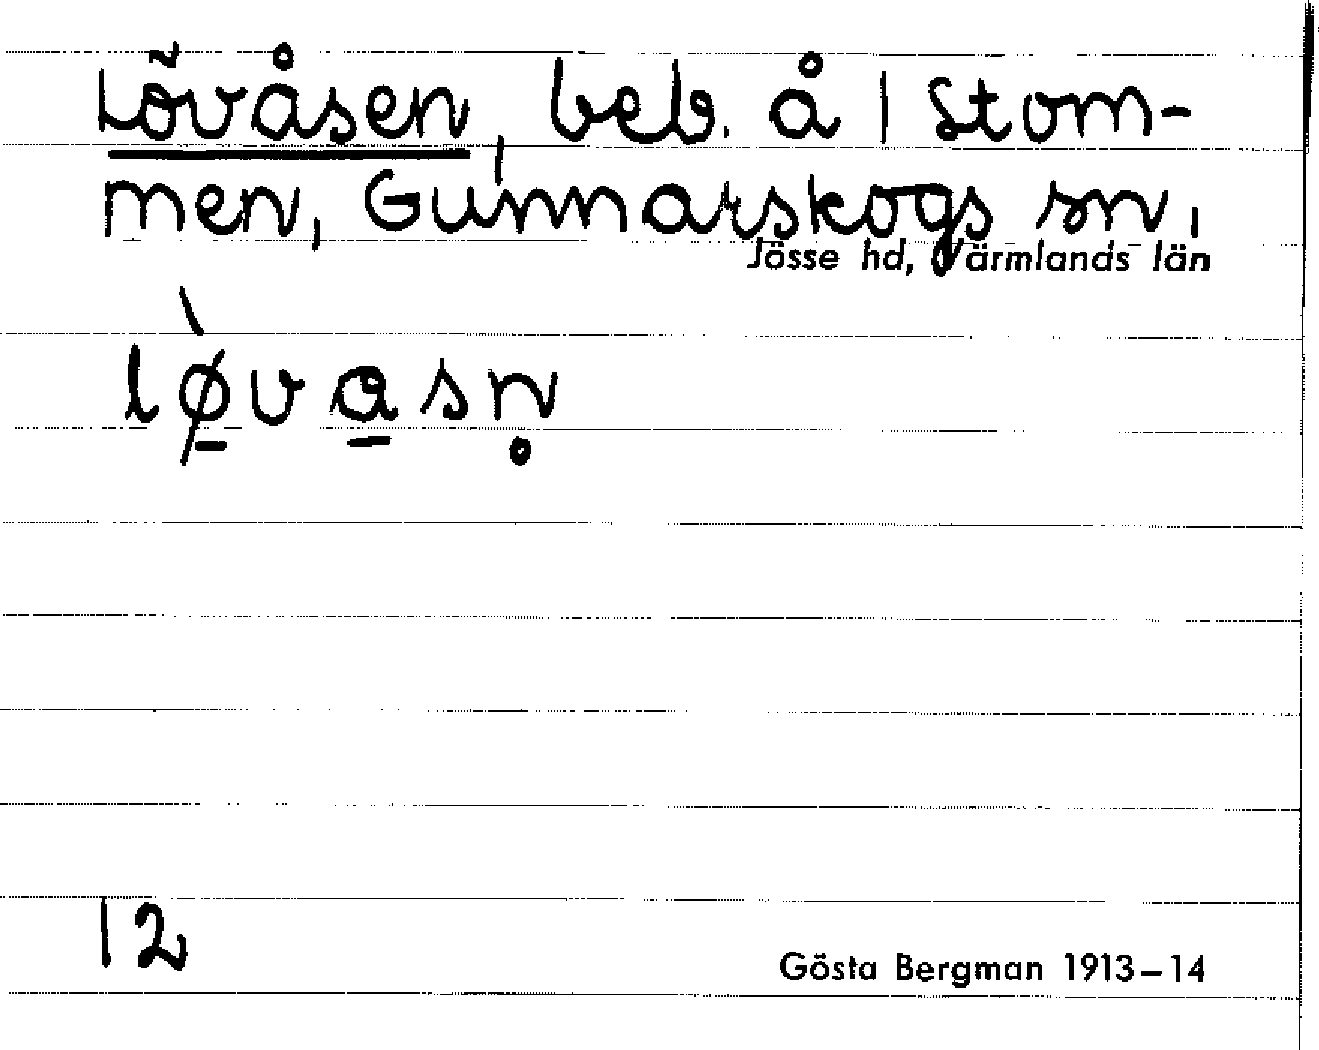 Lövåsen, beb. å 1 Stom-
men, Gunnarskogs sn,
Jösse hd, Värmlands län
lø̠̀va̠sn̥
12
Gösta Bergman 1913–14